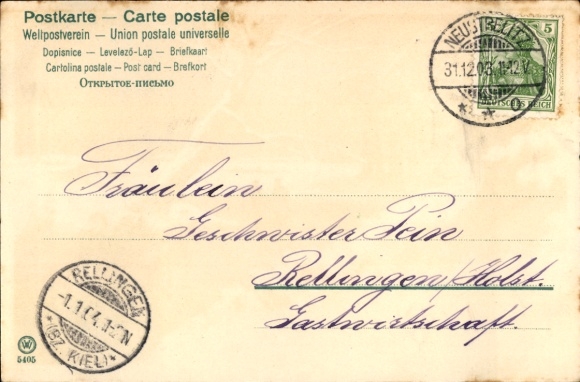 Postkarte — Carte postale
Weltpostverein — Union postale universelle
Dopisnice — Levelező-Lap — Briefkaart
Cartolina postale — Post card — Brefkort
Открытое-письмо
NEUSTRELITZ
31.12.03. 11-12V.
5
DEUTSCHES REICH
Fräulein
Geschwister Pein
Rellingen/Holst.
Gastwirtschaft.
RELLINGEN
-1.1.04. 1-2N
*(BZ. KIEL)*
5405